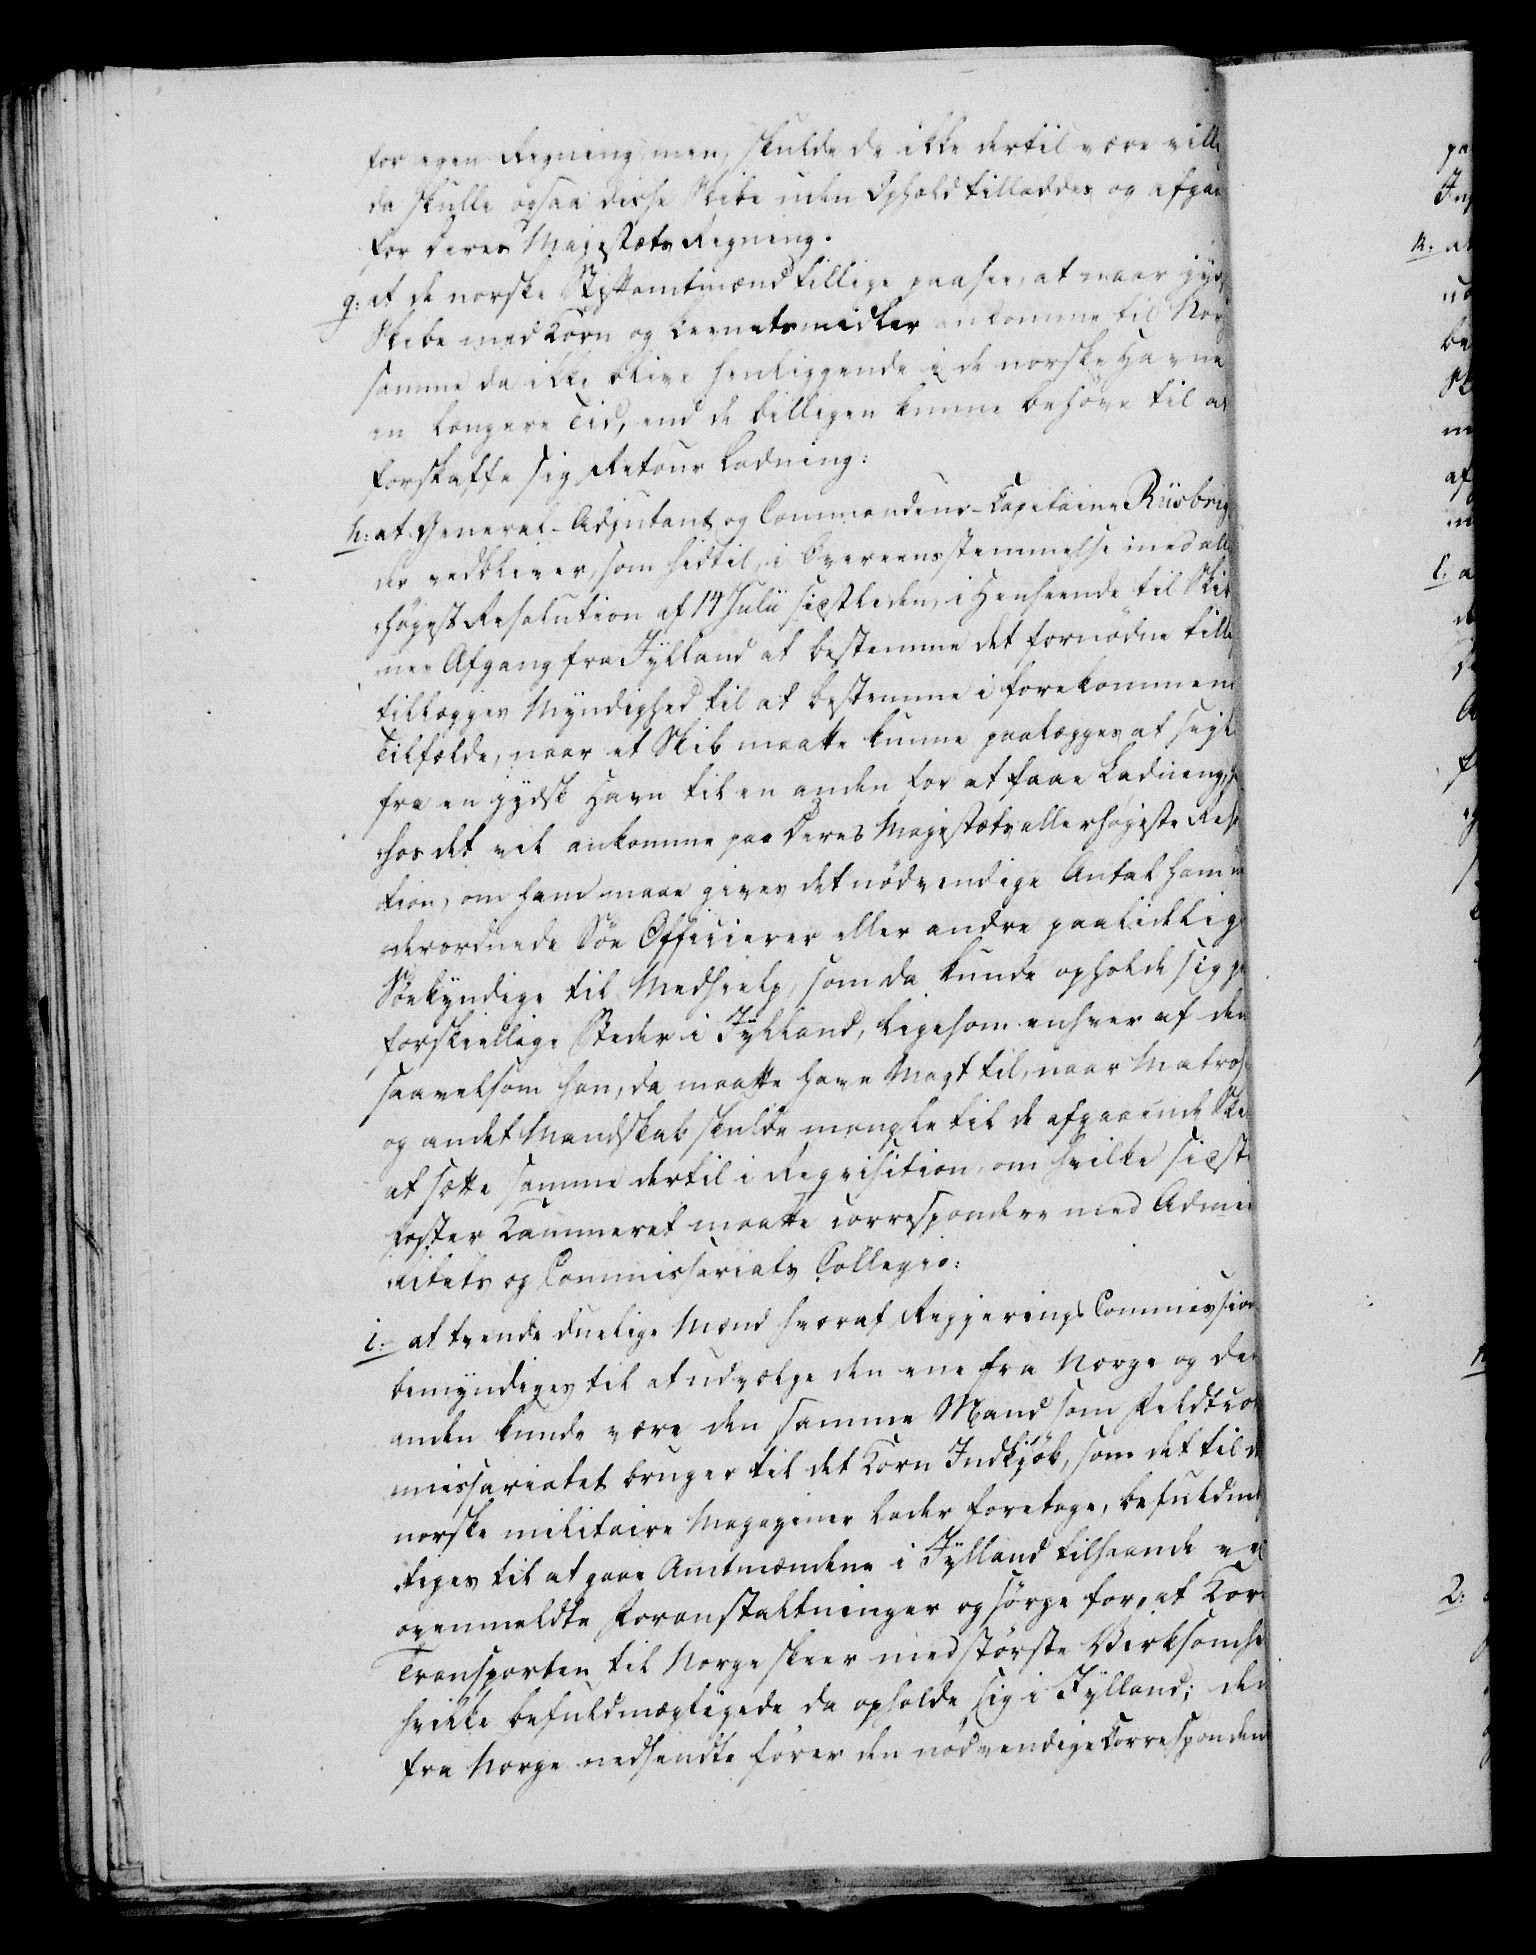 for egen Regning men, skulde de ikke dertil være vill
da skulle ogsaa disse Skibe uden Ophold tilladdes og afgaa
for Deres Majestæts Regning.
g: at de norske Stiftamtmænd tillige paasee, at naar jyds
Skibe med Korn og Levnetsmidler ankomme til Nor
samme da ikke blive henliggende i de norske Havne
en længere Tid, end de billigen kunne behöve til at
forskaffe sig Retour Ladning:
h: at General-Adjutant og Commandeur-Capitaine Riisbrig
der vedbliver, som hidtil, i Overeensstemmelse med all
höyest Resolution af 14 Julii sidstleden, i Henseende til Skib
nes Afgang fra Jylland at bestemme det fornødne till
tillægges Myndighed til at bestemme i forekommen
Tilfælde, naar et Skib maatte kunne paalægges at seyl
fra en jydsk Havn til en anden for at faae Ladning,
hos det vil ankomme paa Deres Majestæts allerhøyeste Reso
tion, om ham maae gives det nödvendige Antal ham u
derordnede Söe Officierer eller andre paalidelig
Söekyndige til Medhielp, som da kunde opholde sig p
forskiellige Steder i Jylland, ligesom enhver af dem
saavelsom han, da maatte have Magt til, naar Matros
og andet Mandskab skulde mangle til de afgaaende Ski
at sætte samme dertil i Reqvisition, om hvilke sidst
Poster Kammeret maatte correspondere med Admi
ralitets og Commissariats Collegio:
i: at tvende duelige Mænd hvoraf Regjerings Commission
bemyndiges til at udvælge den ene fra Norge og den
anden kunde være den samme Mand som Feldtcom
missariatet bruger til det Korn Indkjöb, som det til d
norske militaire Magaziner lader foretage, befuldmæ
tiges til at gaae Amtmændene i Jylland tilhaande ved
ovenmeldte Foranstaltninger og sörge for, at Korn
Transporten til Norge skeer med störste Virksomhe
hvilke befuldmægtigede da opholde sig i Jylland; den
fra Norge nedsendte fører den nödvendige Corresponden